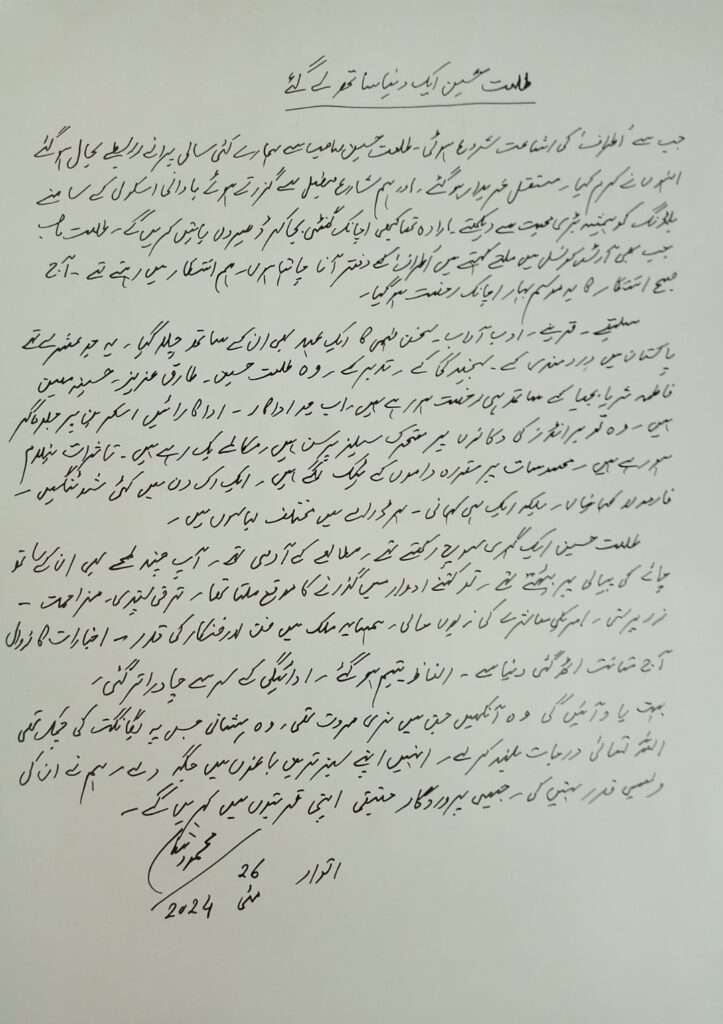 طلعت حسین ایک دنیا ساتھ لے گئے
جب سے 'اطراف' کی اشاعت شروع ہوئی۔ طلعت حسین صاحب سے ہمارے کئی سالی پرانے رابطے بحال ہو گئے
انہوں نے کرم کیا۔ مستقل خریدار ہو گئے۔ اور ہم شارع فیصل سے گزرتے ہوئے بادانی اسکول کے سامنے
بلڈنگ کو ہمیشہ بڑی محبت سے دیکھتے۔ ارادہ تھا کبھی اچانک گھنٹی بجا کر ڈھیروں باتیں کریں گے۔ طلعت صاحب
جب بھی آرٹس کونسل میں ملتے کہتے میں 'اطراف' کے دفتر آنا چاہتا ہوں۔ ہم انتظار میں رہتے تھے۔ آج
صبح انتظار کا یہ موسم بہار اچانک رخصت ہو گیا۔
سلیقے۔ قرینے۔ ادب آداب۔ سخن فہمی کا ایک عہد بھی ان کے ساتھ چلا گیا۔ یہ جو عشرے تھے
پاکستان میں دردمندی کے۔ سنجیدگی کے۔ تدبر کے۔ وہ طلعت حسین۔ طارق عزیز۔ حسینہ معین
فاطمہ ثریا بجیا کے ساتھ ہی رخصت ہو رہے ہیں۔ اب جو اداکار۔ اداکارائیں اسکرینوں پر جلوہ گر
ہیں۔ وہ تو برانڈز کی دکانوں پر متحرک سیلز پرسن ہیں۔ مکالمے بک رہے ہیں۔ تاثرات نیلام
ہو رہے ہیں۔ محسوسات پر مقررہ داموں کے ٹیگ لگے ہیں۔ ایک اک دن میں کئی شوٹنگیں۔
فارمولا کہانیاں۔ بلکہ ایک ہی کہانی۔ ہر ڈرامے میں مختلف لباسوں میں۔
طلعت حسین ایک گہری سوچ رکھتے تھے۔ مطالعے کے آدمی تھے۔ آپ چند لمحے بھی ان کے ساتھ
چائے کی پیالی پر بیٹھتے تھے۔ تو کتنے ادوار میں گزرنے کا موقع ملتا تھا۔ ترقی پسندی۔ مزاحمت۔
زر پرستی۔ امریکی معاشرے کی زبوں حالی۔ ہمسایہ ملک میں فن اور فنکار کی قدر۔ اخبارات کا زوال
آج متانت اٹھ گئی دنیا سے۔ الفاظ یتیم ہو گئے۔ ادائیگی کے سر سے چادر اتر گئی۔
بہت یاد آئیں گی وہ آنکھیں جن میں نری مروت تھی۔ وہ پیشانی جس پہ یگانگت کی چمک تھی
اللہ تعالیٰ درجات بلند کرے۔ انہیں اپنے سبز ترین باغوں میں جگہ دے۔ ہم نے ان کی
ویسی قدر نہیں کی۔ جیسی پروردگار حقیقی اپنی قربتوں میں کریں گے۔
محمود شام
اتوار 26
مئی 2024